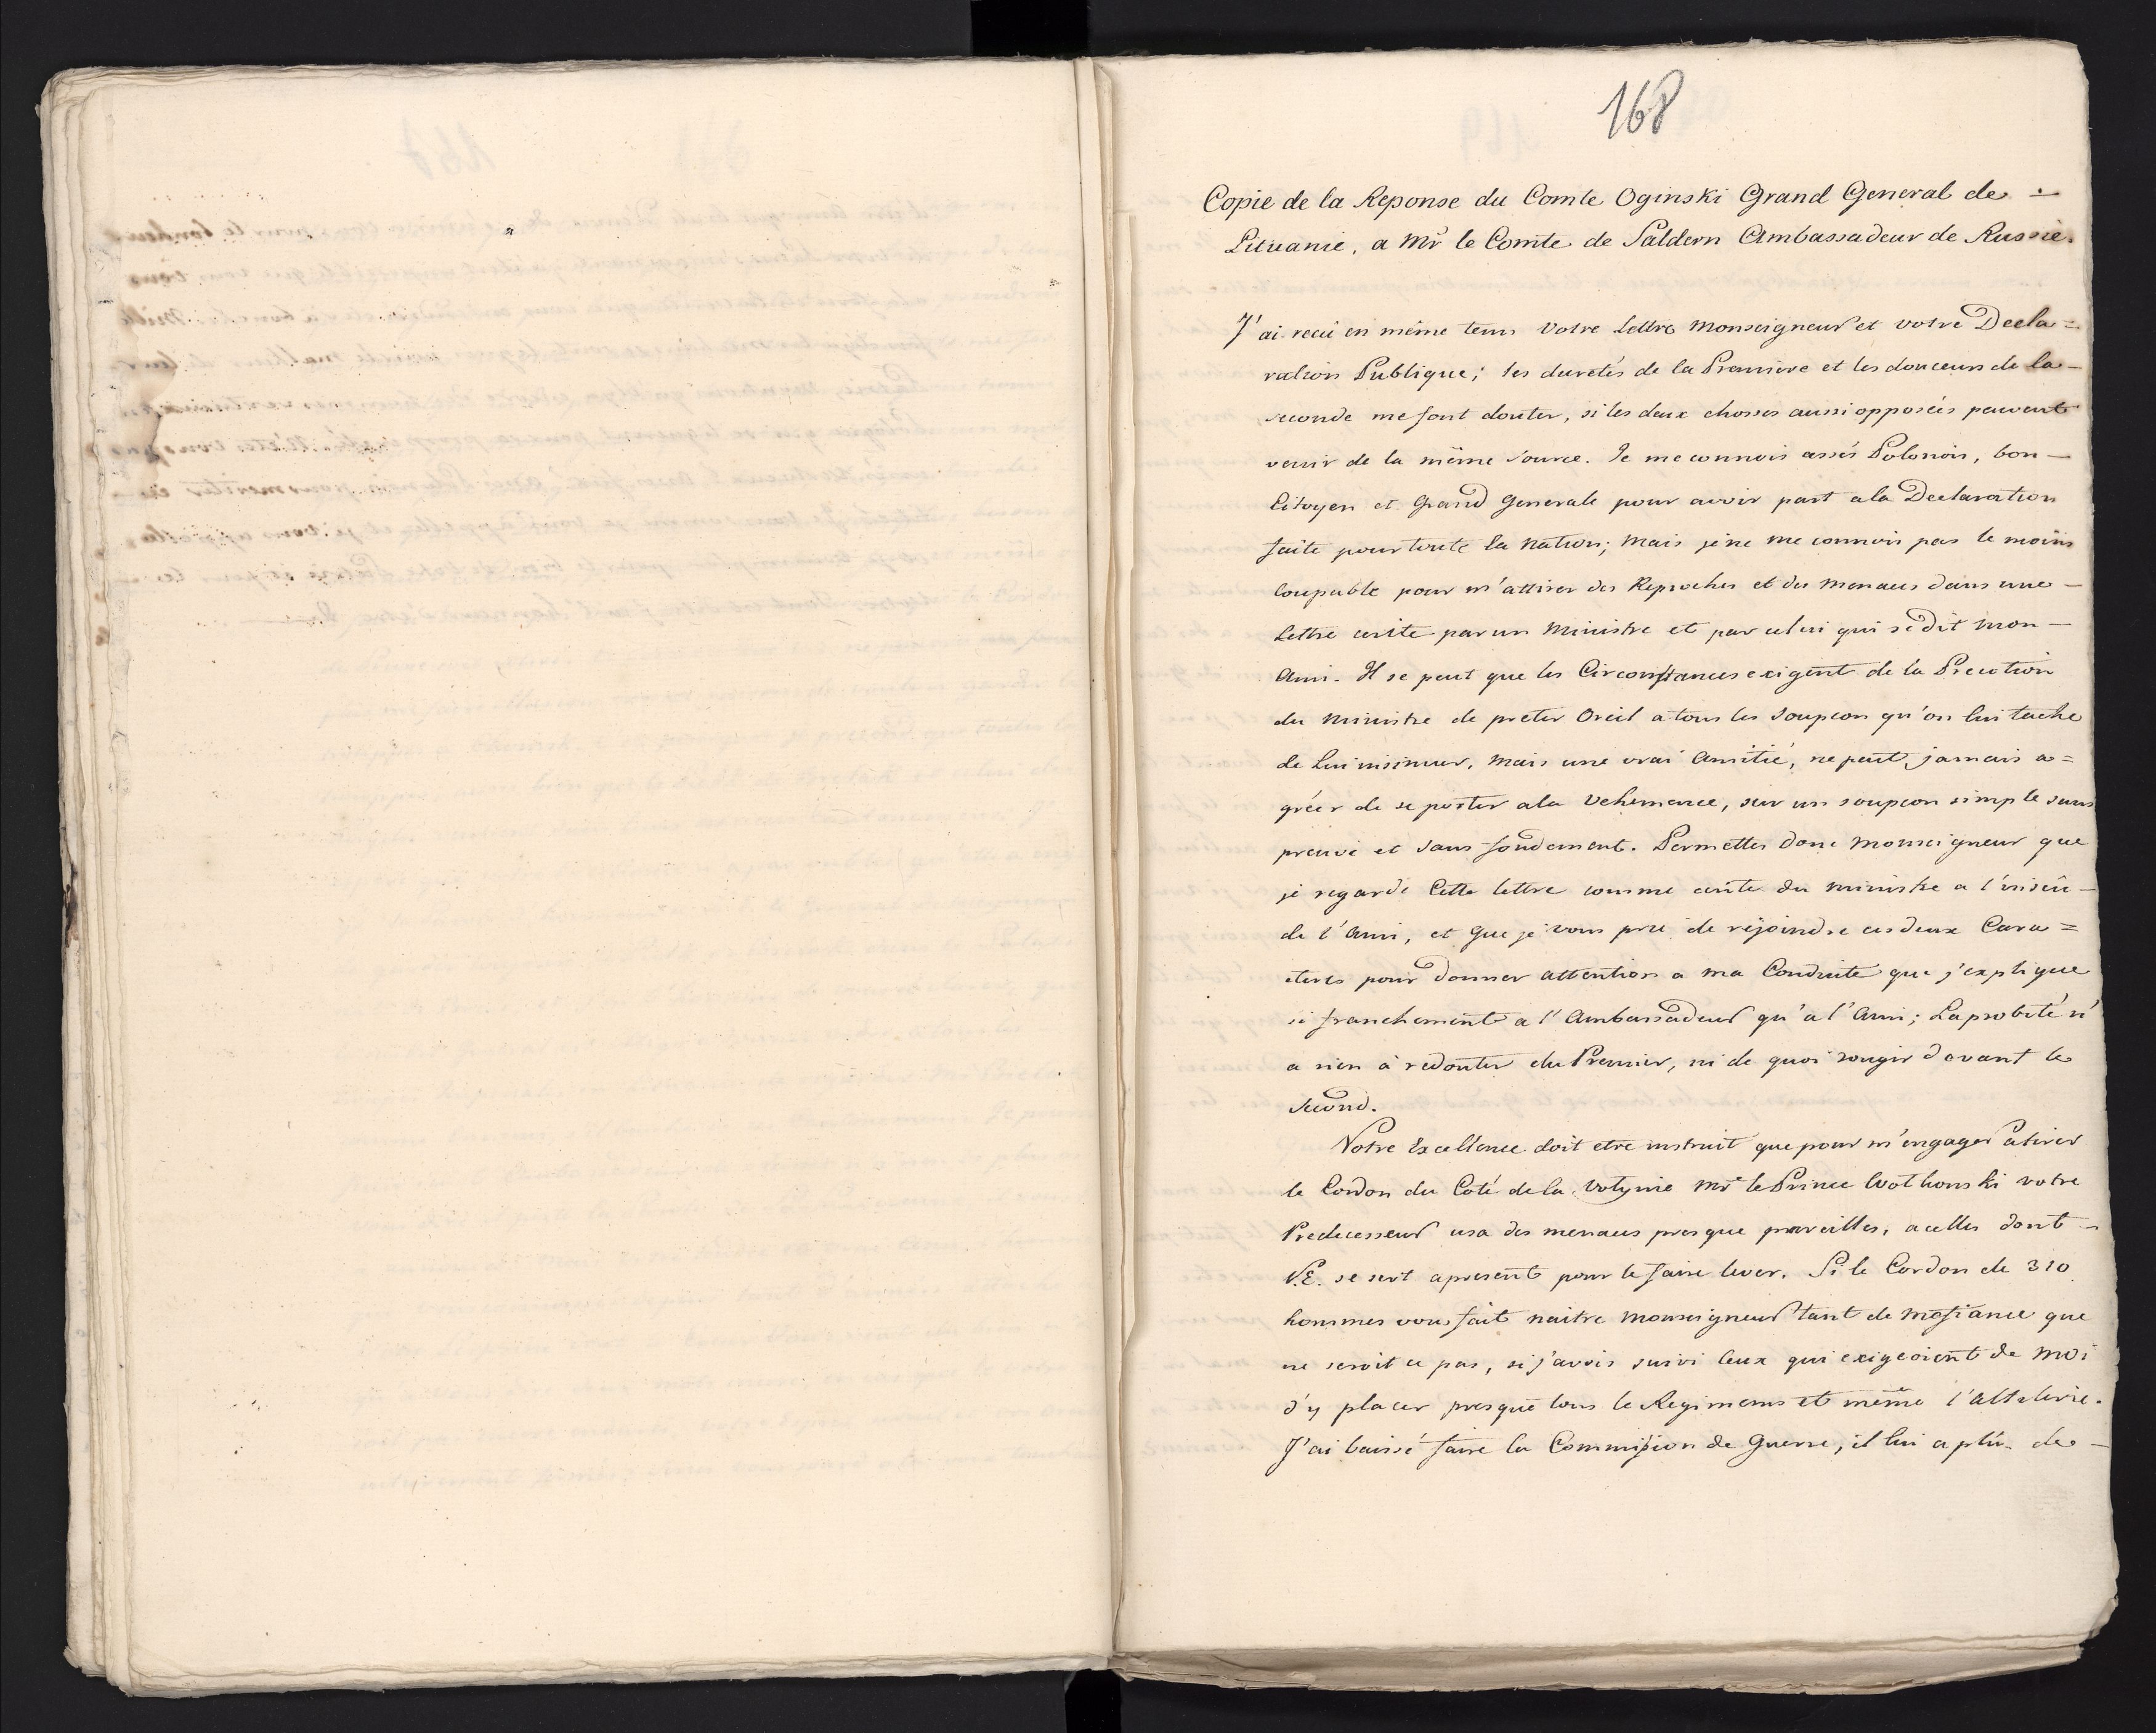 168
Copie de la Reponse du Comte Oginski Grand General de
Lituanie, a Mr le Comte de Saldern Ambassadeur de Russie.
J'ai recú en même tems Votre Lettre Monseigneur et votre Decla=
ration Publique; les duretés de la Premiere et les douceurs de la
seconde me font douter, si les deux choses aussi opposées peuvent
venir de la même source. Je me connois assés Polonois, bon
Citoyen et Grand Generale pour avoir part a la Declaration
faite pour toute la Nation; Mais je ne me connois pas le moins
Coupable pour m'attirer des Reproches et des Menaces dans une
Lettre ecrite par un Ministre et par celui qui se dit mon
Ami. Il se peut que les Circonstances exigent de la Precotion
du Ministre de preter Oreil a tous les Soupcon qu'on lui tache
de Lui insinuer, Mais une vrai Amitié, ne peut jamais a=
gréer de se porter a la Vehemence, sur un soupcon simple sans
preuve et sans fondement. Permettes donc Monseigneur que
je regarde Cette lettre comme ecrite du Ministre a l'inscû
de l'Ami, et que je vous prie de rejoindre ces deux Cara=
cteres pour donner attention a ma Conduite que j'explique
si franchement a l'Ambassadeur qu'a l'Ami; La probité n'
a rien à redouter du Premier, ni de quoi rougir devant le
second.
Votre Excellence doit etre instruit que pour m'engager a tirer
le Cordon du Coté de la Volynie Mr le Prince Wolkonski votre
Predecesseur usa des menaces presque pareilles, a celles dont
V.E. se sert apresent pour le faire lever. Si le Cordon de 310
hommes vous fait naitre Monseigneur tant de Mefiance que
ne seroit ce pas, si j'avois suivi Ceux qui exigeoient de moi
d'y placer presque tous le Regimens et même l'Attelerie.
J'ai laissé faire la Commission de Guerre, il lui a plû de